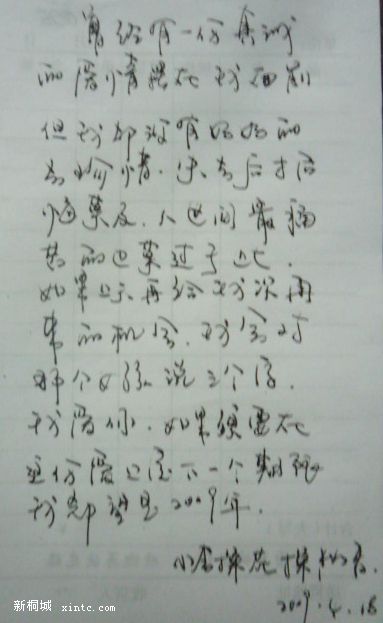 曾经有一份真诚
的爱情摆在我面前
但我却没有好好的
去珍惜.失去后才后
悔莫及.人世间最痛
苦的也莫过于此.
如果上天再给我次再
来的机会.我会对
那个女孩说三个字.
我爱你.如果须要在
这份爱上写下一个期限
我希望是2009年.
2009.4.18
新桐城 xintc.com